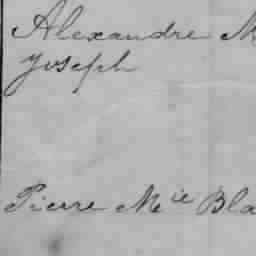 Alexandre M
Joseph
Pierre Mie Bla